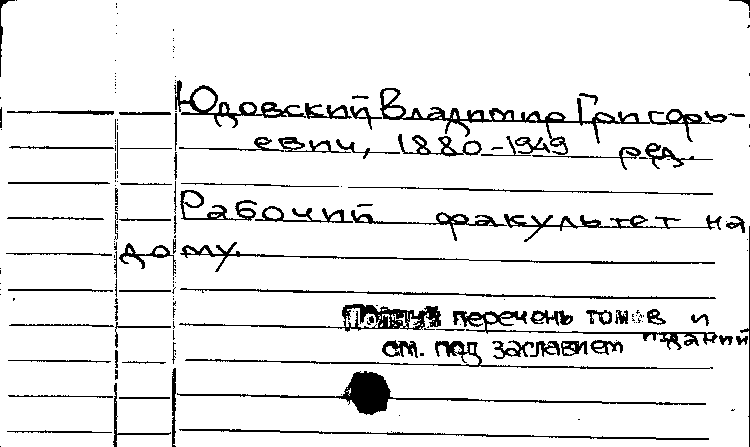 Юдовский Владимир Григорь-
евич, 1880-1949 ред.
Рабочий факультет на
дому.
Полный перечень томов и
изданий
см. под заглавием